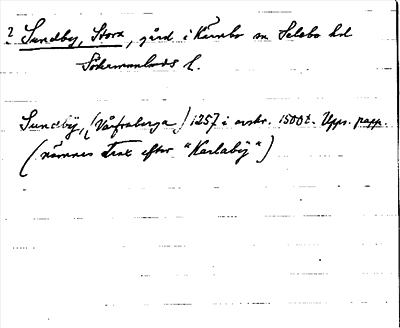 ? Sundby, Stora, gård i Kärnbo sn Selebo hd
Södermanlands l.
Sundby, (Vårfruberga) 1257 i avskr. 1500t. Upps. papp.
(nämnes strax efter "Karlaby")